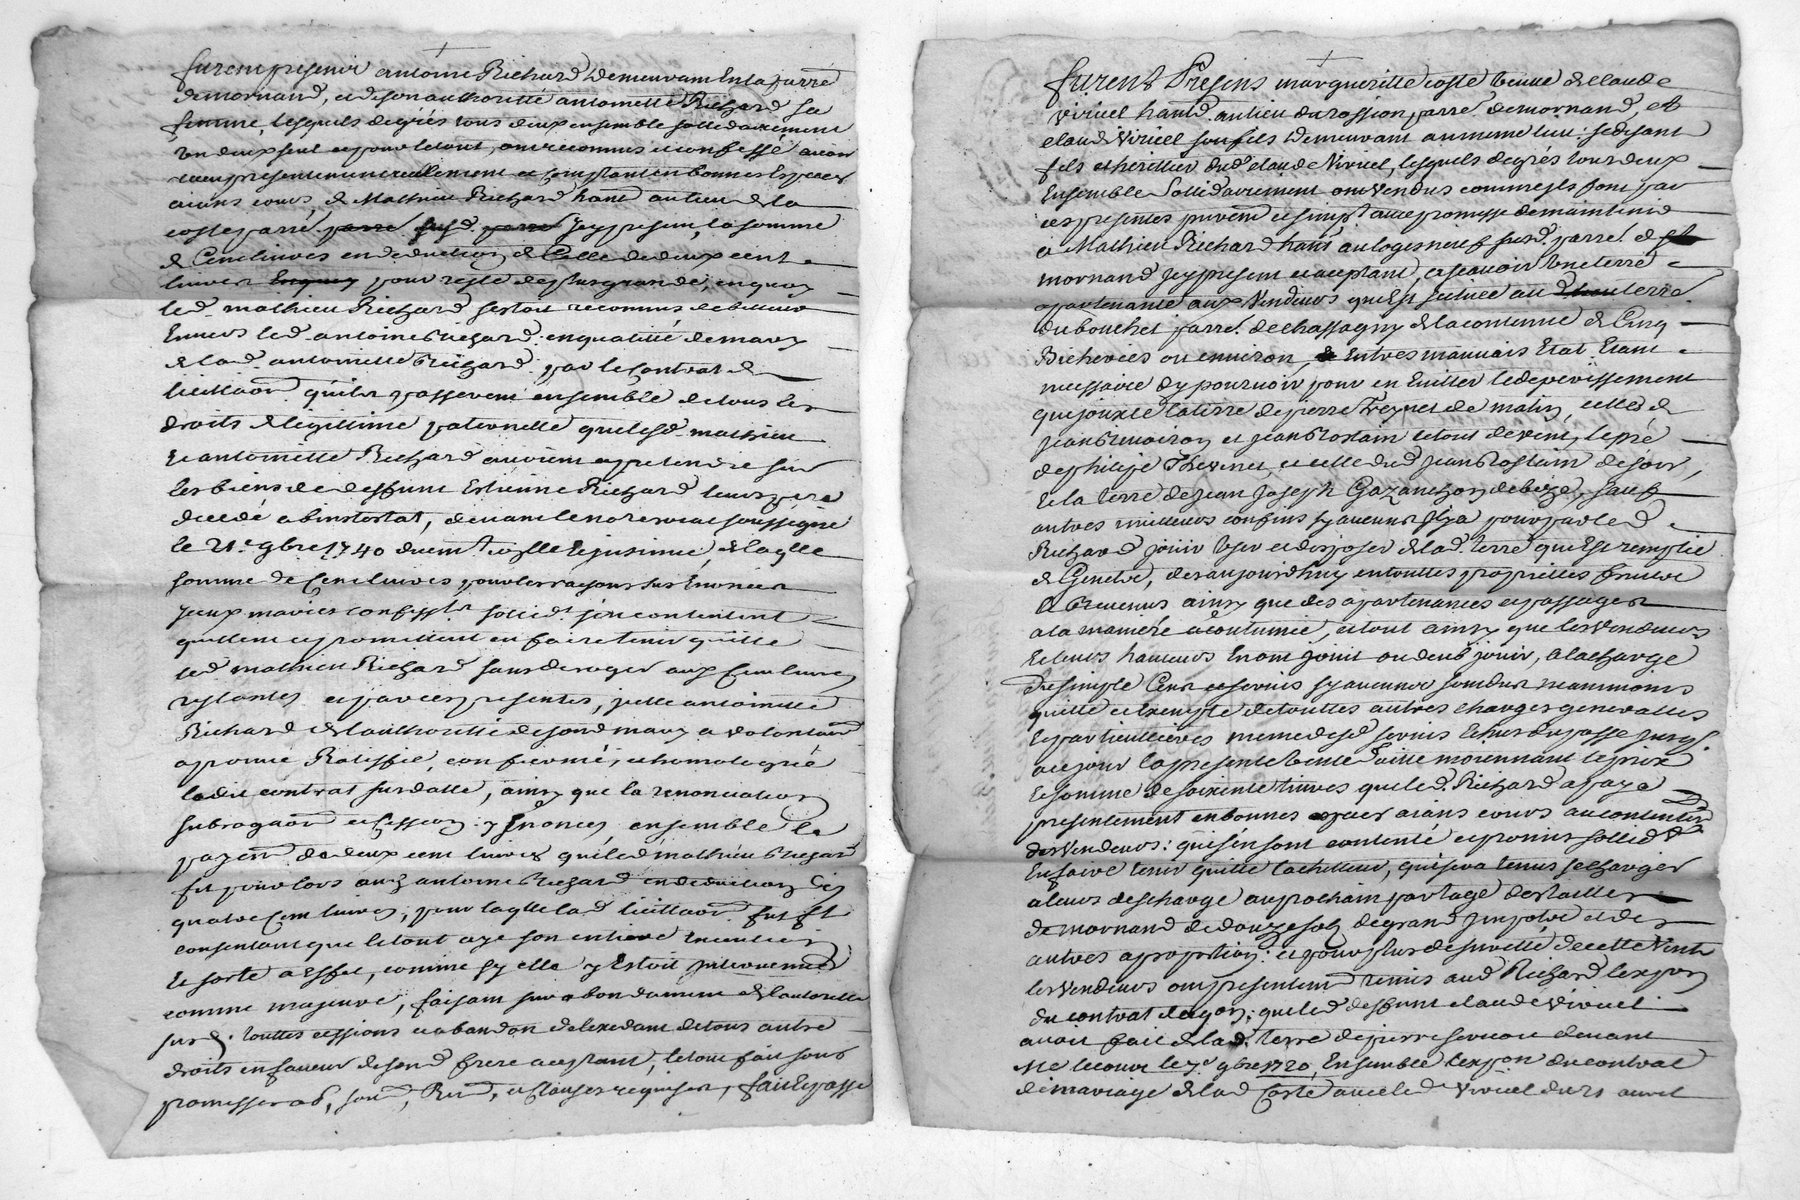 furent presents antoine Richard demeurant en la parre
de mornand, et de son authoritté antoinette Richard sa
femme, lesquels de grés tous deux ensemble sollidairement
un deux seul et pour le tout, ont reconnus et confessé avoir
receu presentement reellement et comptant en bonnes especes
aians cours, de Mathieu Richard hant au lieu de la
coste parré susd. jcy present, la somme
de Cent livres en deduction de Celle de deux cent
livres pour reste de plus grande, en quoy
led. mathieu Richard sestoit reconnus debiteur
Envers led. antoine Richard, en qualitté de mary
de lad. antoinette Richard par le Contrat de
quils passerent ensemble de tous les
droits de legitime paternelle que lesd. mathieu
et antoinette Richard avoient a pretendre sur
les biens de deffunt Estienne Richard leurs pere
decedé abinstestat, devant le no.re royal soussigné
le 21.e 9bre 1740 et insinué, de laqlle
somme de Cent livres pour les raisons sus Enoncées
jceux mariés confess.ts sollid.t sen contentent
quittent et promettent en faire tenir quitte
led. mathieu Richard sans deroger aux Cent livres
restantes et par ces presentes, jcelle antoinette
Richard de lauthoritté de sond. mary a volontair.t
aprouvé Ratiffié, confirmé, et homologué
ledit contrat susdatté, ainsy que la renonciation
subrogaon et Cession y Enoncés, ensemble le
payem.t de deux cent livres que led. mathieu Richard
fit pour lors aud. antoine Richard en deduction des
quatre Cent livres, pour laqlle lad. fut ft
consentant que le tout aye son entiere execution
et sorte a Effet, comme sy elle y Estoit jntervenue
comme majeure, faisant sur abondamment de lautoritté
susd. touttes cessions et abandon de lexedant de tous autre
droits en faveur de sond. frere aceptant, le tout fait sous
promesses ob, soum, Ren, et Clauses requises, fait et passé
furent Presens margueritte coste veuve de claude
virieel hant. au lieu du rossion, parré. de mornand, et
claude virieel son fils demeurant au meme lieu se disant
fils et heritier dud. claude Virieel, lesquels de grés tous deux
Ensemble Sollidairement ont vendus comme ils font par
ces presentes purem.t et simpt. avec promesse de maintenir
a Mathieu Richard hant au logis neuf susd. parré. de
mornand jcy present et aceptant, a scavoir une terre
apartenante aux Vendeurs qui Est scituée au terre.
du bouchet parré. de chassagny de la contenue de Cinq
Bicherées ou environ, En tres mauvais Etat Etant
necessaire dy pourvoir pour en Eviter le deperissement
qui jouxte la terre de pierre freynet de matin, celles de
jean et jean Rostain le tout de vent, le pré
de philipe Thevenet, et celle dud. jean Rostain de soir,
et la terre de jean Joseph Gazanchon de bize, sauf
autres meilleurs confins sy aucuns Il y a pour par led.
Richard jouir user et disposer de lad. terre qui Est remplie
de Genets, des aujourdhuy en touttes propriettés fruits
et Revenus ainsy que des apartenances et passages
a la maniere acoutumée, et tout ainsy que les vendeurs
et leurs hauteurs En ont jouit ou deub jouir, a la charge
du simple Cens et servis sy aucuns sont dus neammoins
quitte et Exempte de touttes autres charges generalles
et particulieres meme desd. servis Echus du passé jusqs.
a ce jour la presente vente faitte moiennant le prix
et somme de soixante livres que led. Richard a payé
presentement en bonnes especes aians cours au contentem.t
des Vendeurs: qui sen sont contenté et promis sollid.t
En faire tenir quitte lachetteur, qui sera tenus se charger
a leurs descharge au prochain partage des tailles
de mornand de douze sols de grand jmposé et des
autres a proportion: et pour plus de suretté de cette vente
les vendeurs ont presentem.t remis aud. Richard lexpon
du contrat daqon: que led. deffunt claude viriuel
avoit fait de lad. terre de pierre devant
Me lecour le 7.e 9bre 1720, Ensemble lexpon du contrat
de mariage de lad. Coste avec led. viriuel du 21 avril